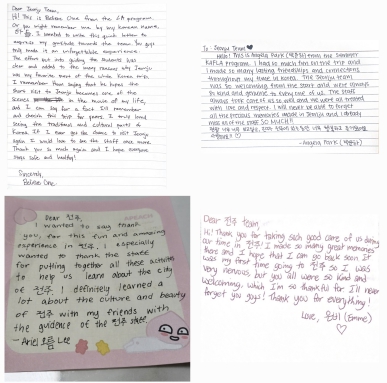 Dear Jeonju Team,
Hi! This is Believe One from the LA program
Or you might remember me by my Korean name,
I wanted to write this quick letter to
express my gratitude towards the team. You guys
truly made it an unforgettable experience.
The effort put into guiding the students was
clear and added to the many reasons why Jeonju
was my favorite part of the whole Korea trip.
I remember them saying that he hopes the
short visit to Jeonju becomes one of the
scenes in the movie of my life,
and I can say for a fact I'll remember
and cherish this trip for years. I truly loved
seeing the traditional and cultural parts of
Korea. If I ever get the chance to visit Jeonju
again I would love to see the staff once more.
Thank you so much again and I hope everyone
stays safe and healthy!
Sincerely,
Believe One.
To: Jeonju Team
Hello! This is Angela Park from the Summer
NAFLA program. I had so much fun on the trip and
I made so many lasting friendships and connections
throughout my time in Korea. The Jeonju team
was so welcoming from the start and were always
so kind and genuine to every one of us. The staff
always took care of us so well and we were all treated
with love and respect. I will never be able to forget
all the precious memories made in Jeonju and I already
miss all of the staff SO MUCH!!
-Angela Park
Dear 전주,
APEACH
I wanted to say thank
you, for this fun and amazing
experience in 전주. I especially
wanted to thank the staff
for putting together all these activities
to help us learn about the city
of 전주. I definitely learned a
lot about the culture and beauty
of 전주 with my friends with
the guidence of the 전주 staff.
-Ariel Lee
Dear 전주 team,
Hi! Thank you for taking such good care of us during
our time in 전주! I made so many great memories
there and I hope that I can go back soon. It
was my first time going to 전주 so I was
very nervous, but you all were so kind and
welcoming, which I'm so thankful for. I'll never
forget you guys! Thank you for everything!
Love, (Emme)